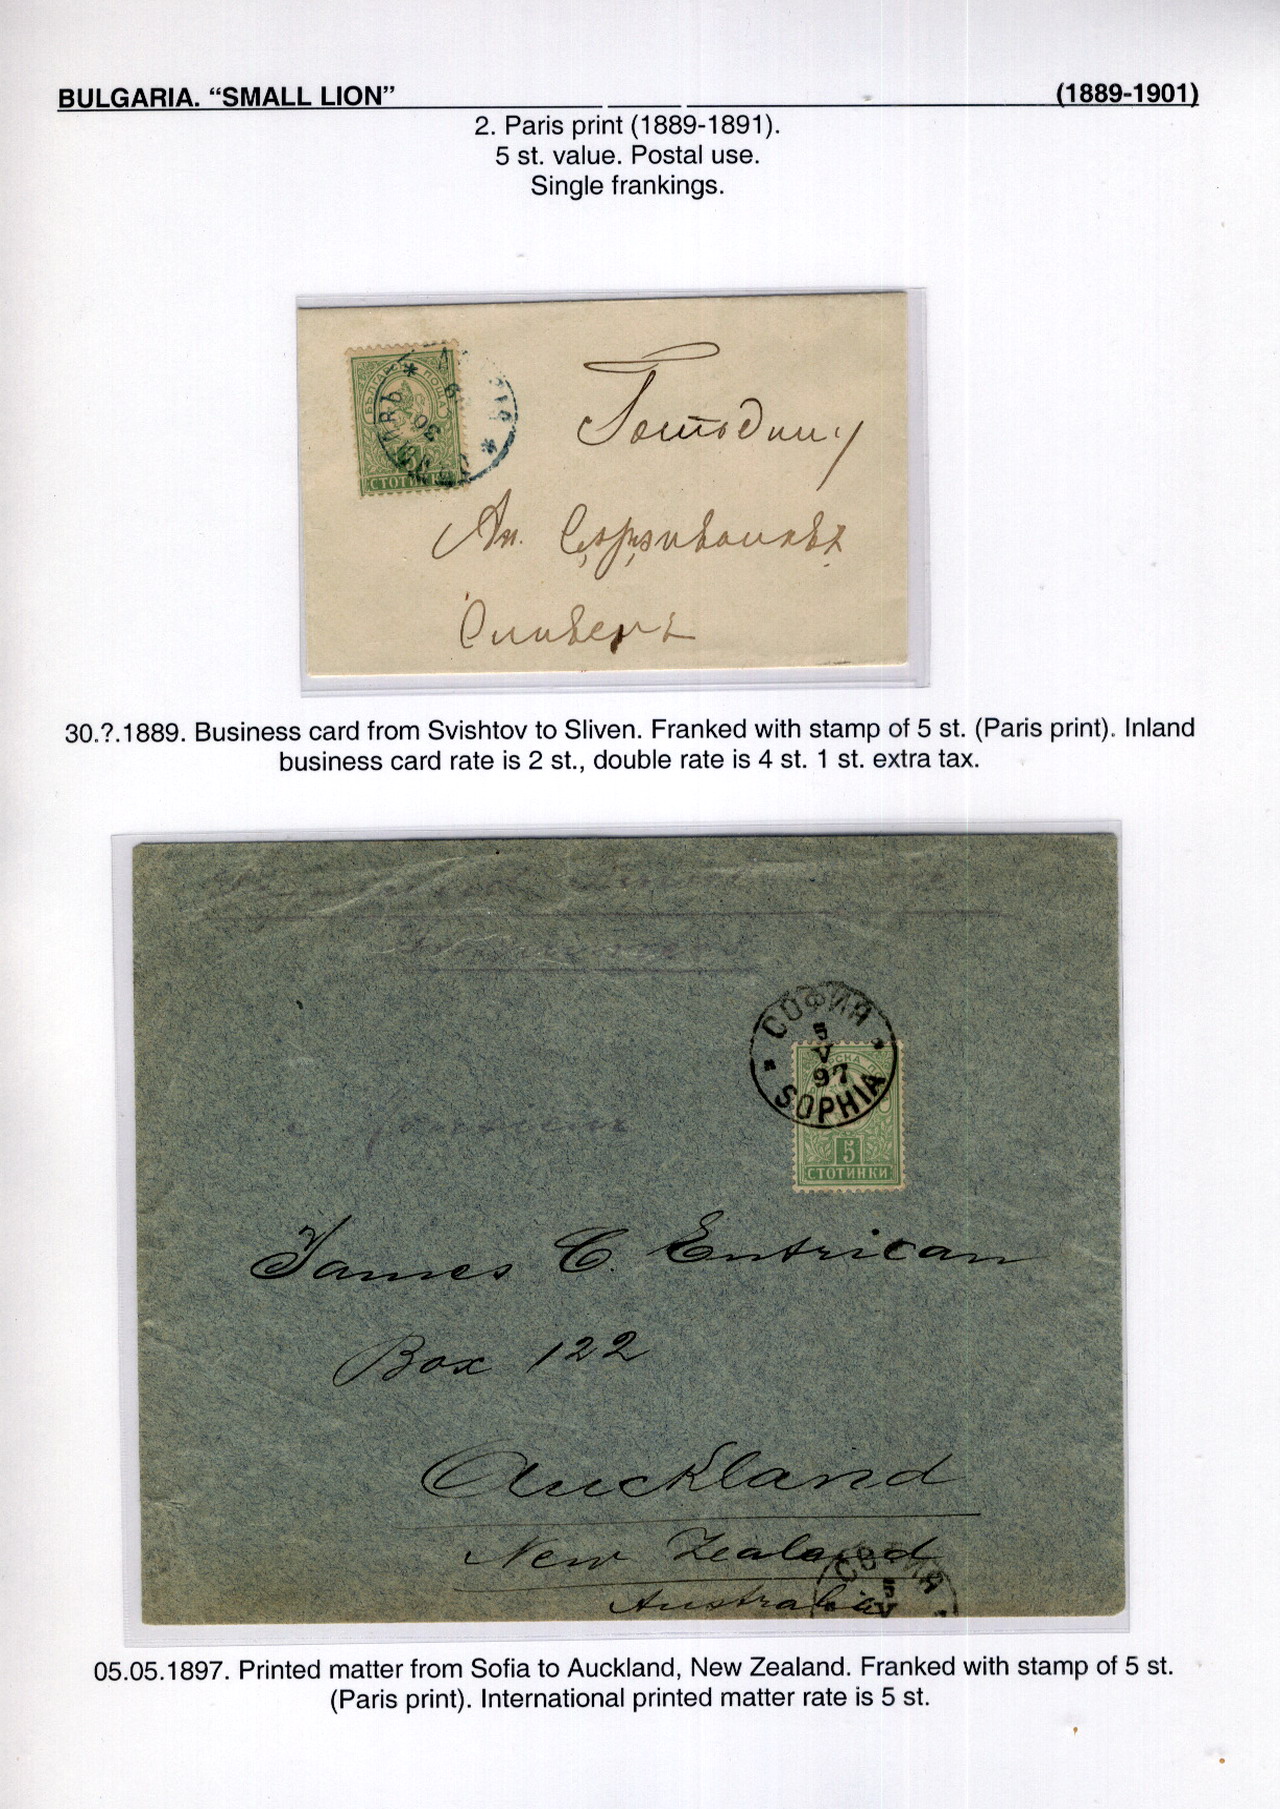 BULGARIA. “SMALL LION” (1889-1901)
2. Paris print (1889-1891).
5 st. value. Postal use.
Single frankings.
СТОТИНКИ
Господину
Ан.
Сливенъ
30.?.1889. Business card from Svishtov to Sliven. Franked with stamp of 5 st. (Paris print). Inland
business card rate is 2 st., double rate is 4 st. 1 st. extra tax.
СОФИЯ
5
V
97
SOPHIA
5
СТОТИНКИ
Monsieur
James C. Entrican
Box 122
Auckland
New Zealand
Australia
СОФИЯ
5
V
05.05.1897. Printed matter from Sofia to Auckland, New Zealand. Franked with stamp of 5 st.
(Paris print). International printed matter rate is 5 st.